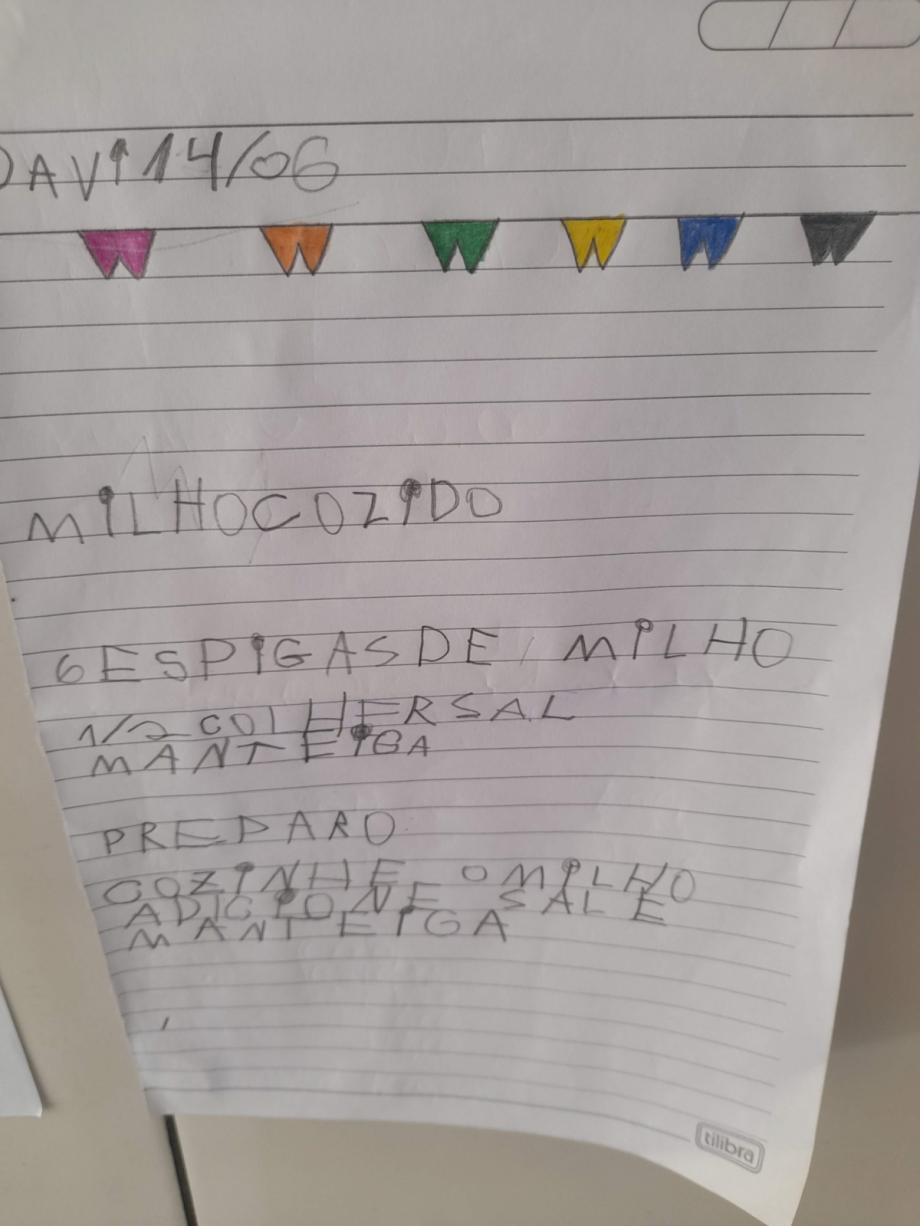 DAVI 14/06
MILHOCOZIDO
6 ESPIGAS DE MILHO
1/2 COLHERSAL
MANTEIGA
PREPARO
COZINHE O MILHO
ADICIONE SAL E
MANTEIGA
tilibra